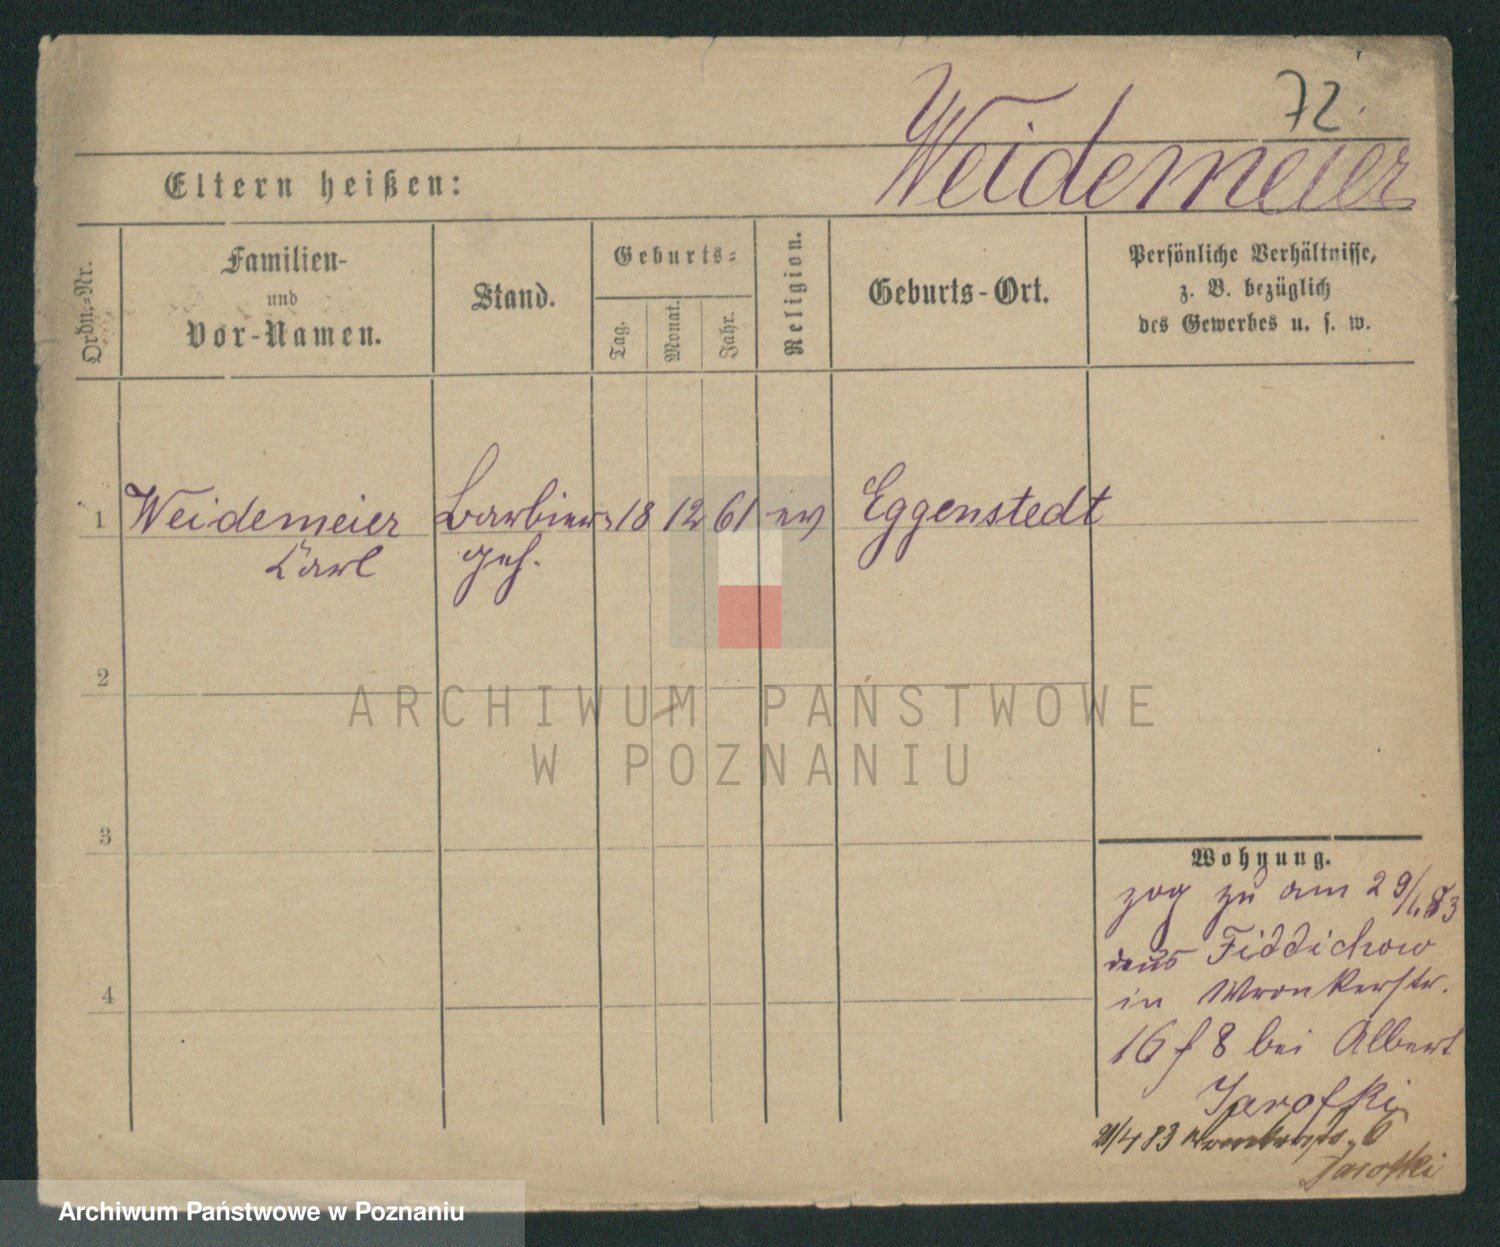 72
Weidemeier
Eltern heißen:
Ordn.=Nr.
Familien-
und
Vor-Namen.
Stand.
Geburts=
Tag.
Monat.
Jahr.
Religion.
Geburts-Ort.
Persönliche Verhältnisse,
z. B. bezüglich
des Gewerbes u. s. w.
1 Weidemeier Barbier= 18 12 61 ev Eggenstedt
Carl geh.
2
ARCHIWUM PAŃSTWOWE
W POZNANIU
3
Wohnung.
zog zu am 29/1.83
aus Fiddichow
4
in Wronkerstr.
16 f 8 bei Albert
Jarofki
21/4 83 6
Jarofki
Archiwum Państwowe w Poznaniu